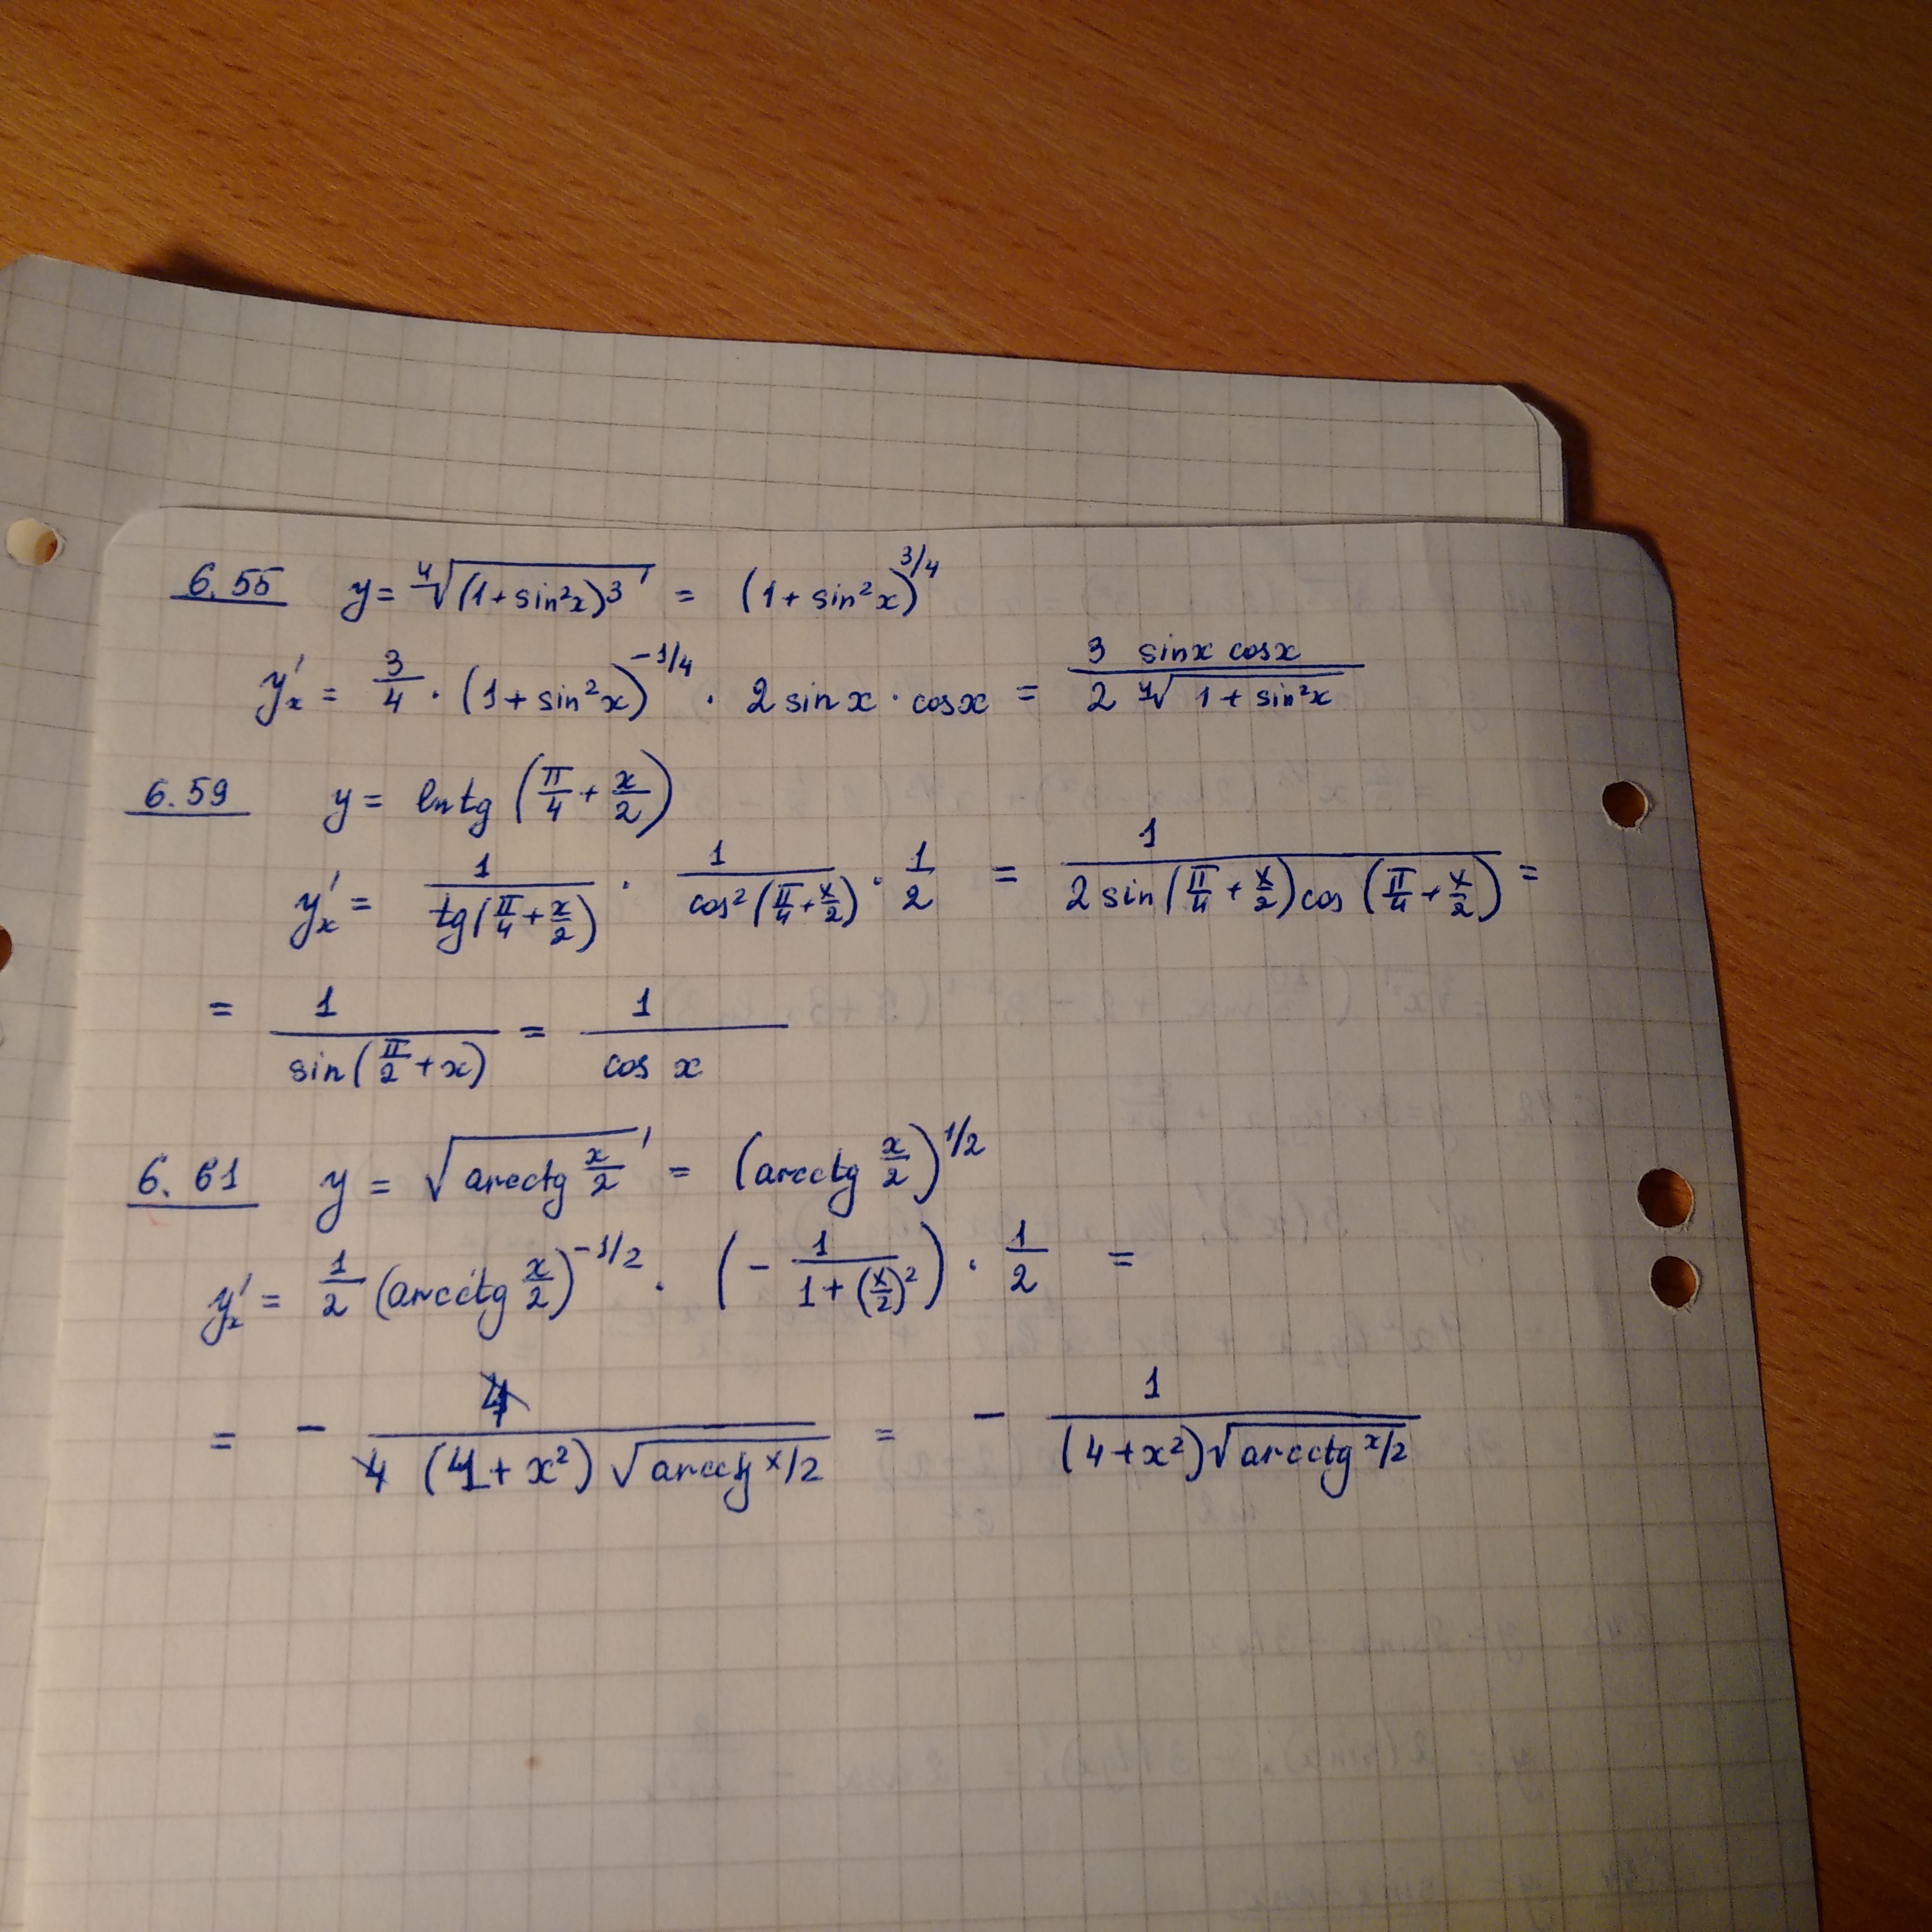 6.55 y = ∜((1+sin²x)³) = (1+sin²x)^{3/4}
y'ₓ = 3/4 · (1+sin²x)^{-1/4} · 2 sin x · cos x = (3 sin x cos x)/(2 ∜(1+sin²x))
6.59 y = ln tg (π/4 + x/2)
y'ₓ = 1/(tg(π/4 + x/2)) · 1/(cos²(π/4 + x/2)) · 1/2 = 1/(2 sin(π/4 + x/2) cos(π/4 + x/2)) =
= 1/(sin(π/2 + x)) = 1/(cos x)
6.61 y = √(arcctg x/2) = (arcctg x/2)^{1/2}
y'ₓ = 1/2 (arcctg x/2)^{-1/2} · (- 1/(1+(x/2)²)) · 1/2 =
= - 4/(4 (4+x²) √(arcctg x/2)) = - 1/((4+x²) √(arcctg x/2))